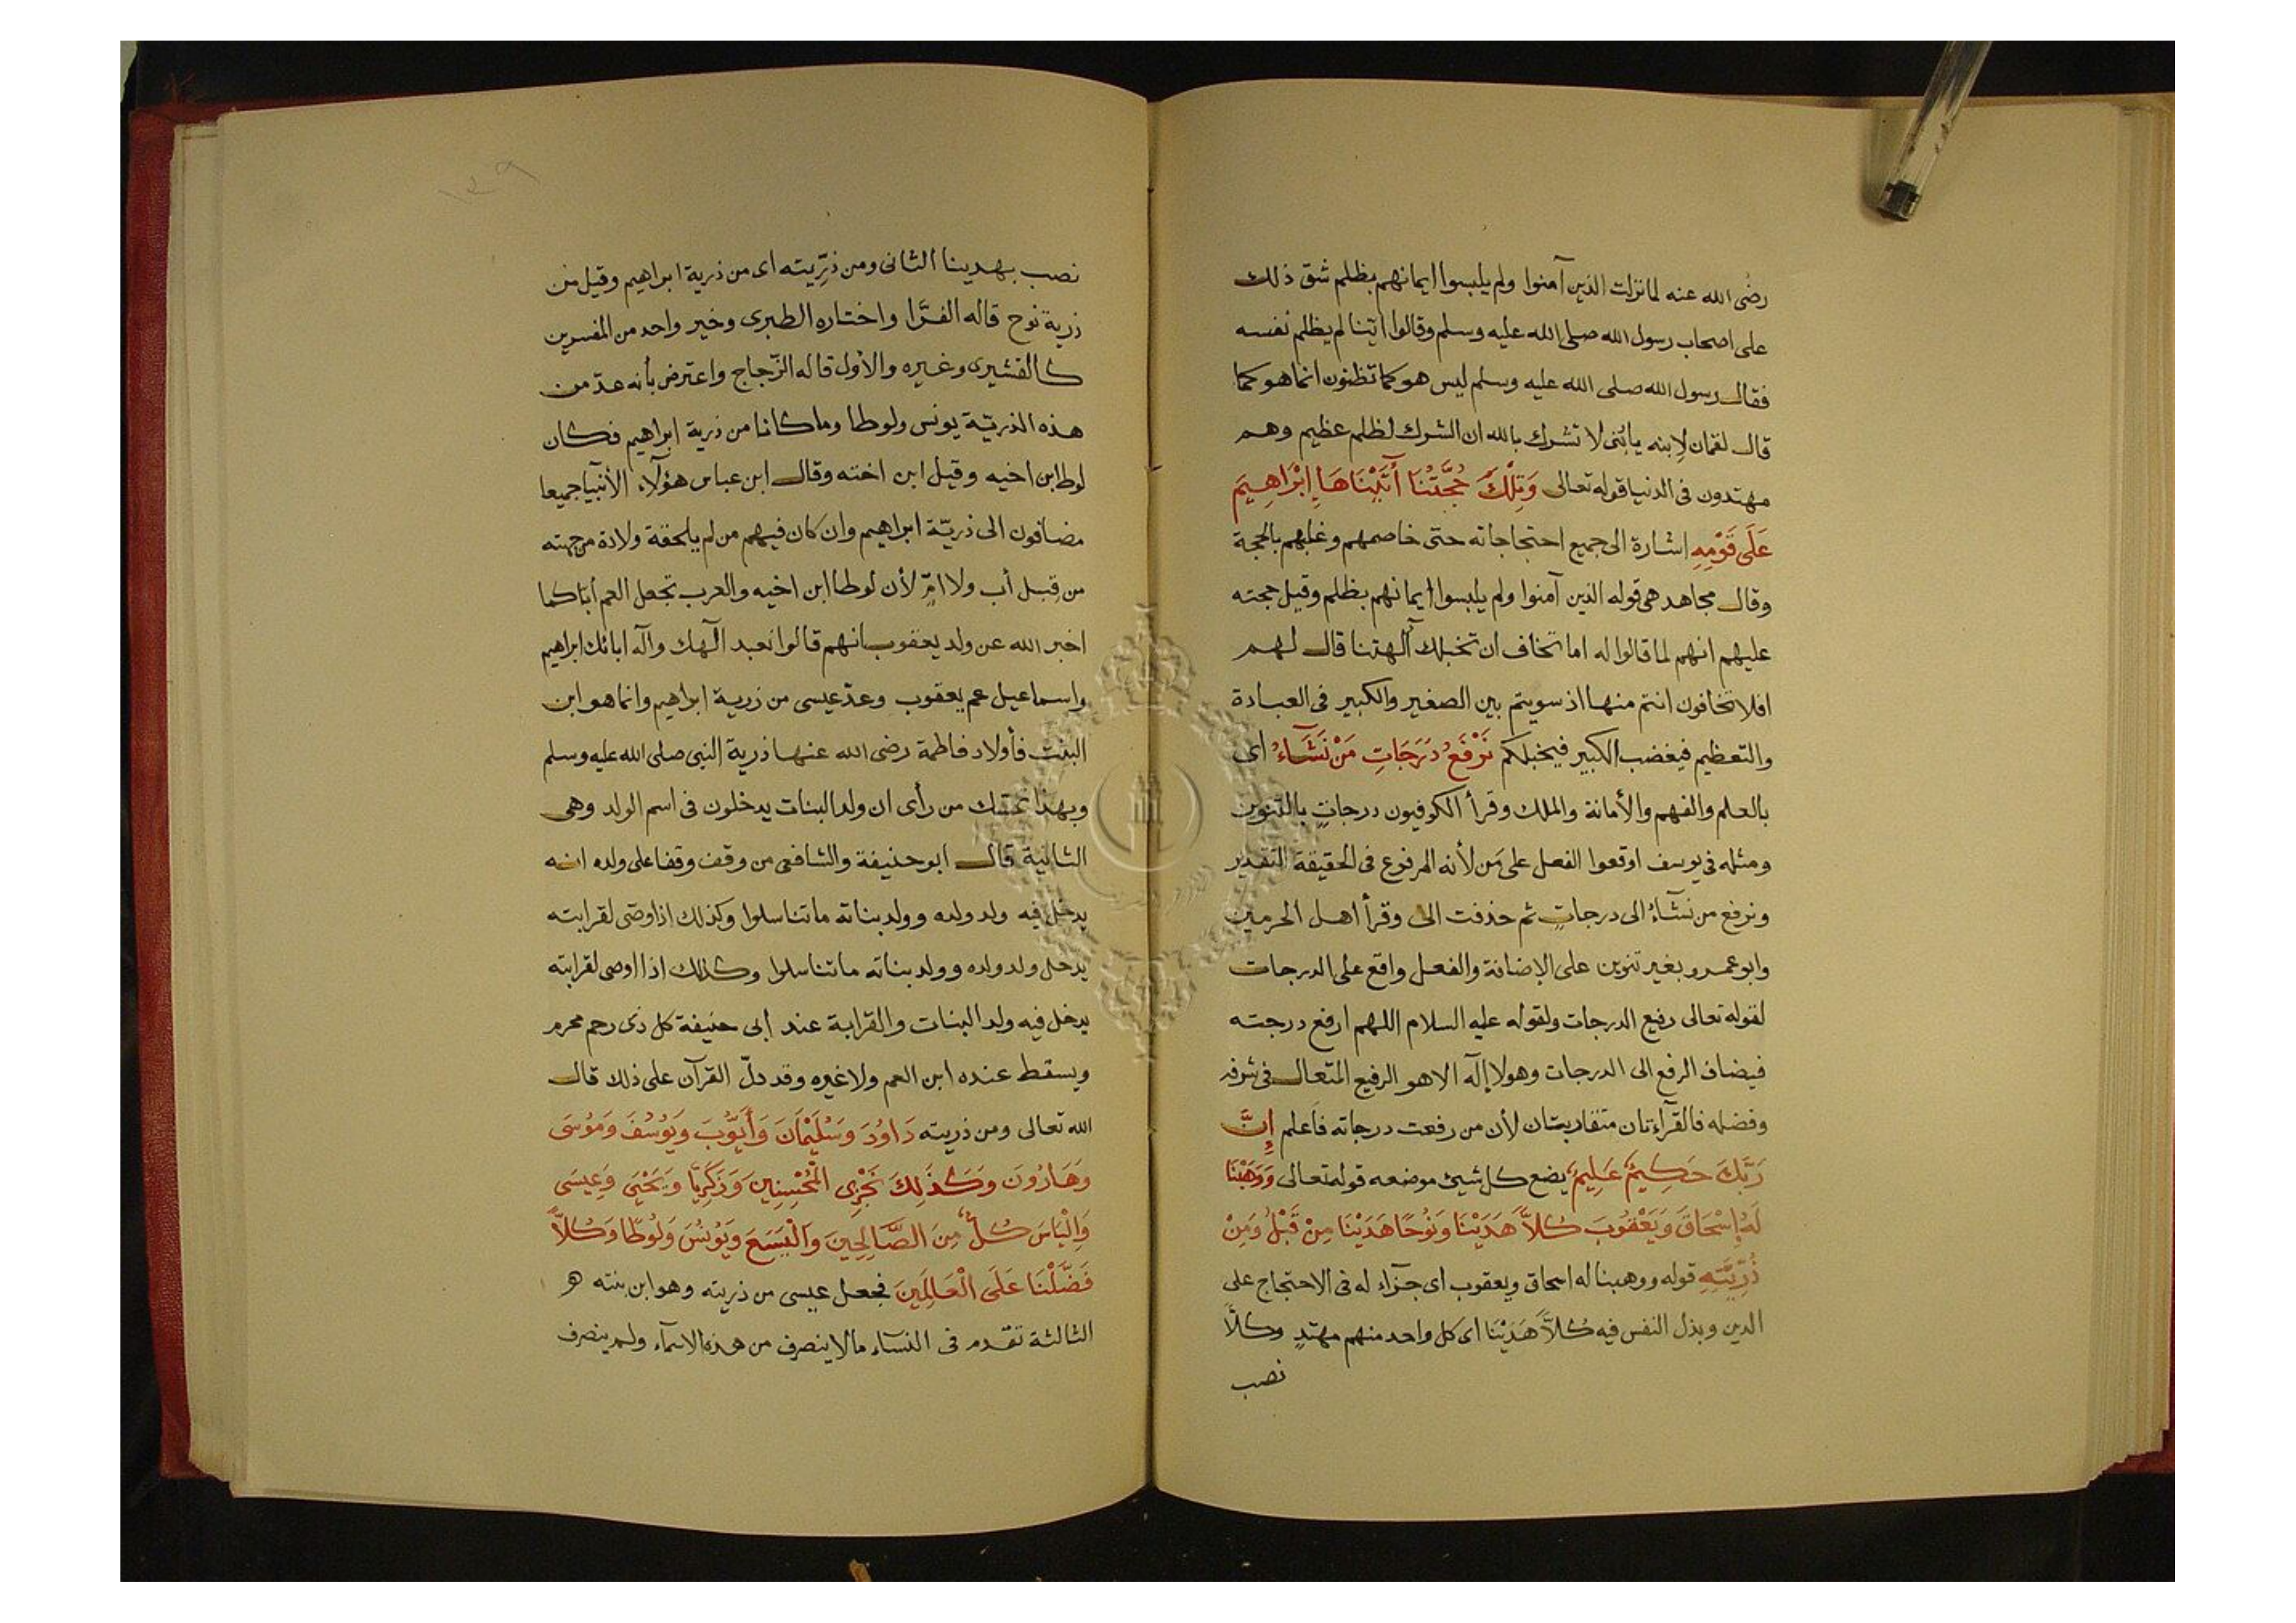 رضى الله عنه لما نزلت الذين آمنوا ولم يلبسوا ايمانهم بظلم شق ذلك
على اصحاب رسول الله صلى الله عليه وسلم وقالوا اينا لم يظلم نفسه
فقال رسول الله صلى الله عليه وسلم ليس هو كما تظنون انما هو كما
قال لقمان لابنه يا بُنى لا تشرك بالله ان الشرك لظلم عظيم وهم
مهتدون فى الدنيا قوله تعالى وَتِلْكَ حُجَّتُنَا أٓتَيْنَاهَا إِبْرَاهِيمَ
عَلَى قَوْمِهِ اشارة الى جميع احتجاجاته حتى خاصمهم وغلبهم بالحجة
وقال مجاهد هى قوله الذين آمنوا ولم يلبسوا ايمانهم بظلم وقيل حجته
عليهم انهم لما قالوا له اما تخاف ان تخبلك آلهتنا قال لهم
افلا تخافون انتم منها اذ سويتم بين الصغير والكبير فى العبادة
والتعظيم فيغضب الكبير فيخبلكم نَرْفَعُ دَرَجَاتِ مَنْ نَشَآءُ اى
بالعلم والفهم والأمانة والملك وقرأ الكوفيون درجاتٍ بالتنوين
ومثله فى يوسف اوقعوا الفعل على مَن لأنه المرفوع فى الحقيقة التقدير
ونرفع من نشآءُ الى درجاتٍ ثم حذفت الى وقرأ اهل الحرمين
وابو عمرو بغير تنوين على الإضافة والفعل واقع على الدرجات
لقوله تعالى رفيع الدرجات ولقوله عليه السلام اللهم ارفع درجته
فيضاف الرفع الى الدرجات وهو لا إلٓه الا هو الرفيع المتعال فى شرفه
وفضله فالقرآءتان متقاربتان لأن من رفعت درجاته فاعلم إِنَّ
رَبَّكَ حَكِيمٌ عَلِيمٌ يضع كل شيئ موضعه قوله تعالى وَوَهَبْنَا
لَهُ إِسْحَاقَ وَيَعْقُوبَ كُلاًّ هَدَيْنَا وَنُوْحًا هَدَيْنَا مِنْ قَبْلُ وَمِنْ
ذُرِّيَّتِهِ قوله ووهبنا له اسحاق ويعقوب اى جزآء له فى الاحتجاج على
الدين وبذل النفس فيه كُلاًّ هَدَيْنَا اى كل واحد منهم مهتدٍ وكلاًّ
نصب
نصب بهدينا الثانى ومن ذرِّيته اى من ذرية ابراهيم وقيل من
ذرية نوح قاله الفرَّا واختاره الطبرى وخير واحد من المفسرين
كالقشيرى وغيره والأول قاله الزّجاج واعترض بأنه عدّ من
هذه الذريّة يونس ولوطا وما كانا من ذرية ابراهيم فكان
لوط ابن اخيه وقيل ابن اخته وقال ابن عباس هؤلآء الأنبيآ جميعا
مضافون الى ذريّة ابراهيم وان كان فيهم من لم يلحقه ولادة من جهته
من قبل أب ولا امٍّ لأن لوطا ابن اخيه والعرب تجعل العم أبًا كما
اخبر الله عن ولد يعقوب انهم قالوا نعبد الٓهك والٓه ابائك ابراهيم
واسماعيل عم يعقوب وعدّ عيسى من ذرية ابراهيم وانما هو ابن
البنت فأولاد فاطمة رضى الله عنها ذرية النبى صلى الله عليه وسلم
وبهذا تمسّك من رأى ان ولد البنات يدخلون فى اسم الولد وهى
الثانية قال ابو حنيفة والشافعى من وقف وقفا على ولده انه
يدخل فيه ولد ولده وولد بناته ما تناسلوا وكذلك اذا وصّى لقرابته
يدخل ولد ولده وولد بناته ما تناسلوا وكذلك اذا اوصى لقرابته
يدخل فيه ولد البنات والقرابة عند ابى حنيفة كل ذى رحم محرم
ويسقط عنده ابن العم ولا غيره وقد دلّ القرآن على ذلك قال
الله تعالى ومن ذريته دَاوُدَ وَسُلَيْمَانَ وَأَيُّوبَ وَيُوسُفَ وَمُوسَى
وَهَارُونَ وَكَذَلِكَ نَجْزِى الْمُحْسِنِينَ وَزَكَرِيَّا وَيَحْيَى وَعِيسَى
وَالْيَاسَ كُلٌّ مِنَ الصَّالِحِينَ وَالْيَسَعَ وَيُونُسَ وَلُوطًا وَكُلاًّ
فَضَّلْنَا عَلَى الْعَالَمِينَ فجعل عيسى من ذريته وهو ابن بنته هـ
الثالثة تقدم فى النسآء ما لا ينصرف من هذه الاسمآء ولم ينصرف